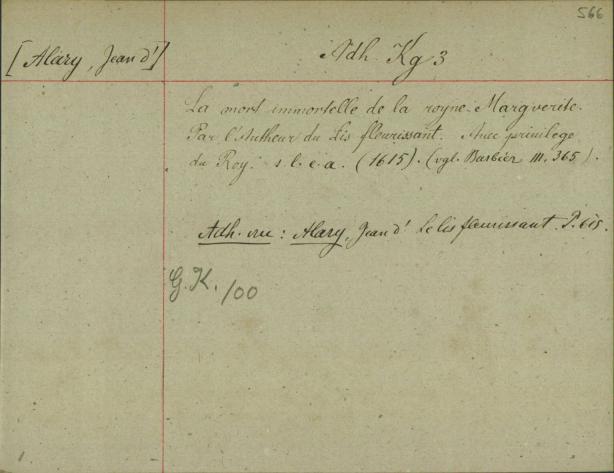 566
[Alary, Jean d']
Adh. Kg 3
La mort immortelle de la royne Margverite.
Par l'Autheur du Lis fleurissant. Auec privilege
du Roy. s. l. e. a. (1615). (vgl. Barbier III. 365).
Adh. : Alary, Jean d' Le lis fleurissant. P. 615.
G.K. 100